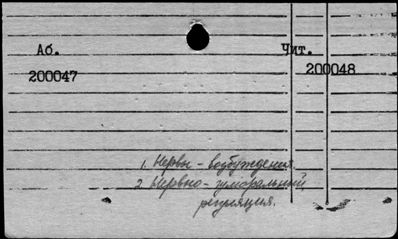 Аб.
Чит.
200047
200048
1. Нервы - возбуждения.
2. Нервно-гуморальный
регуляция.